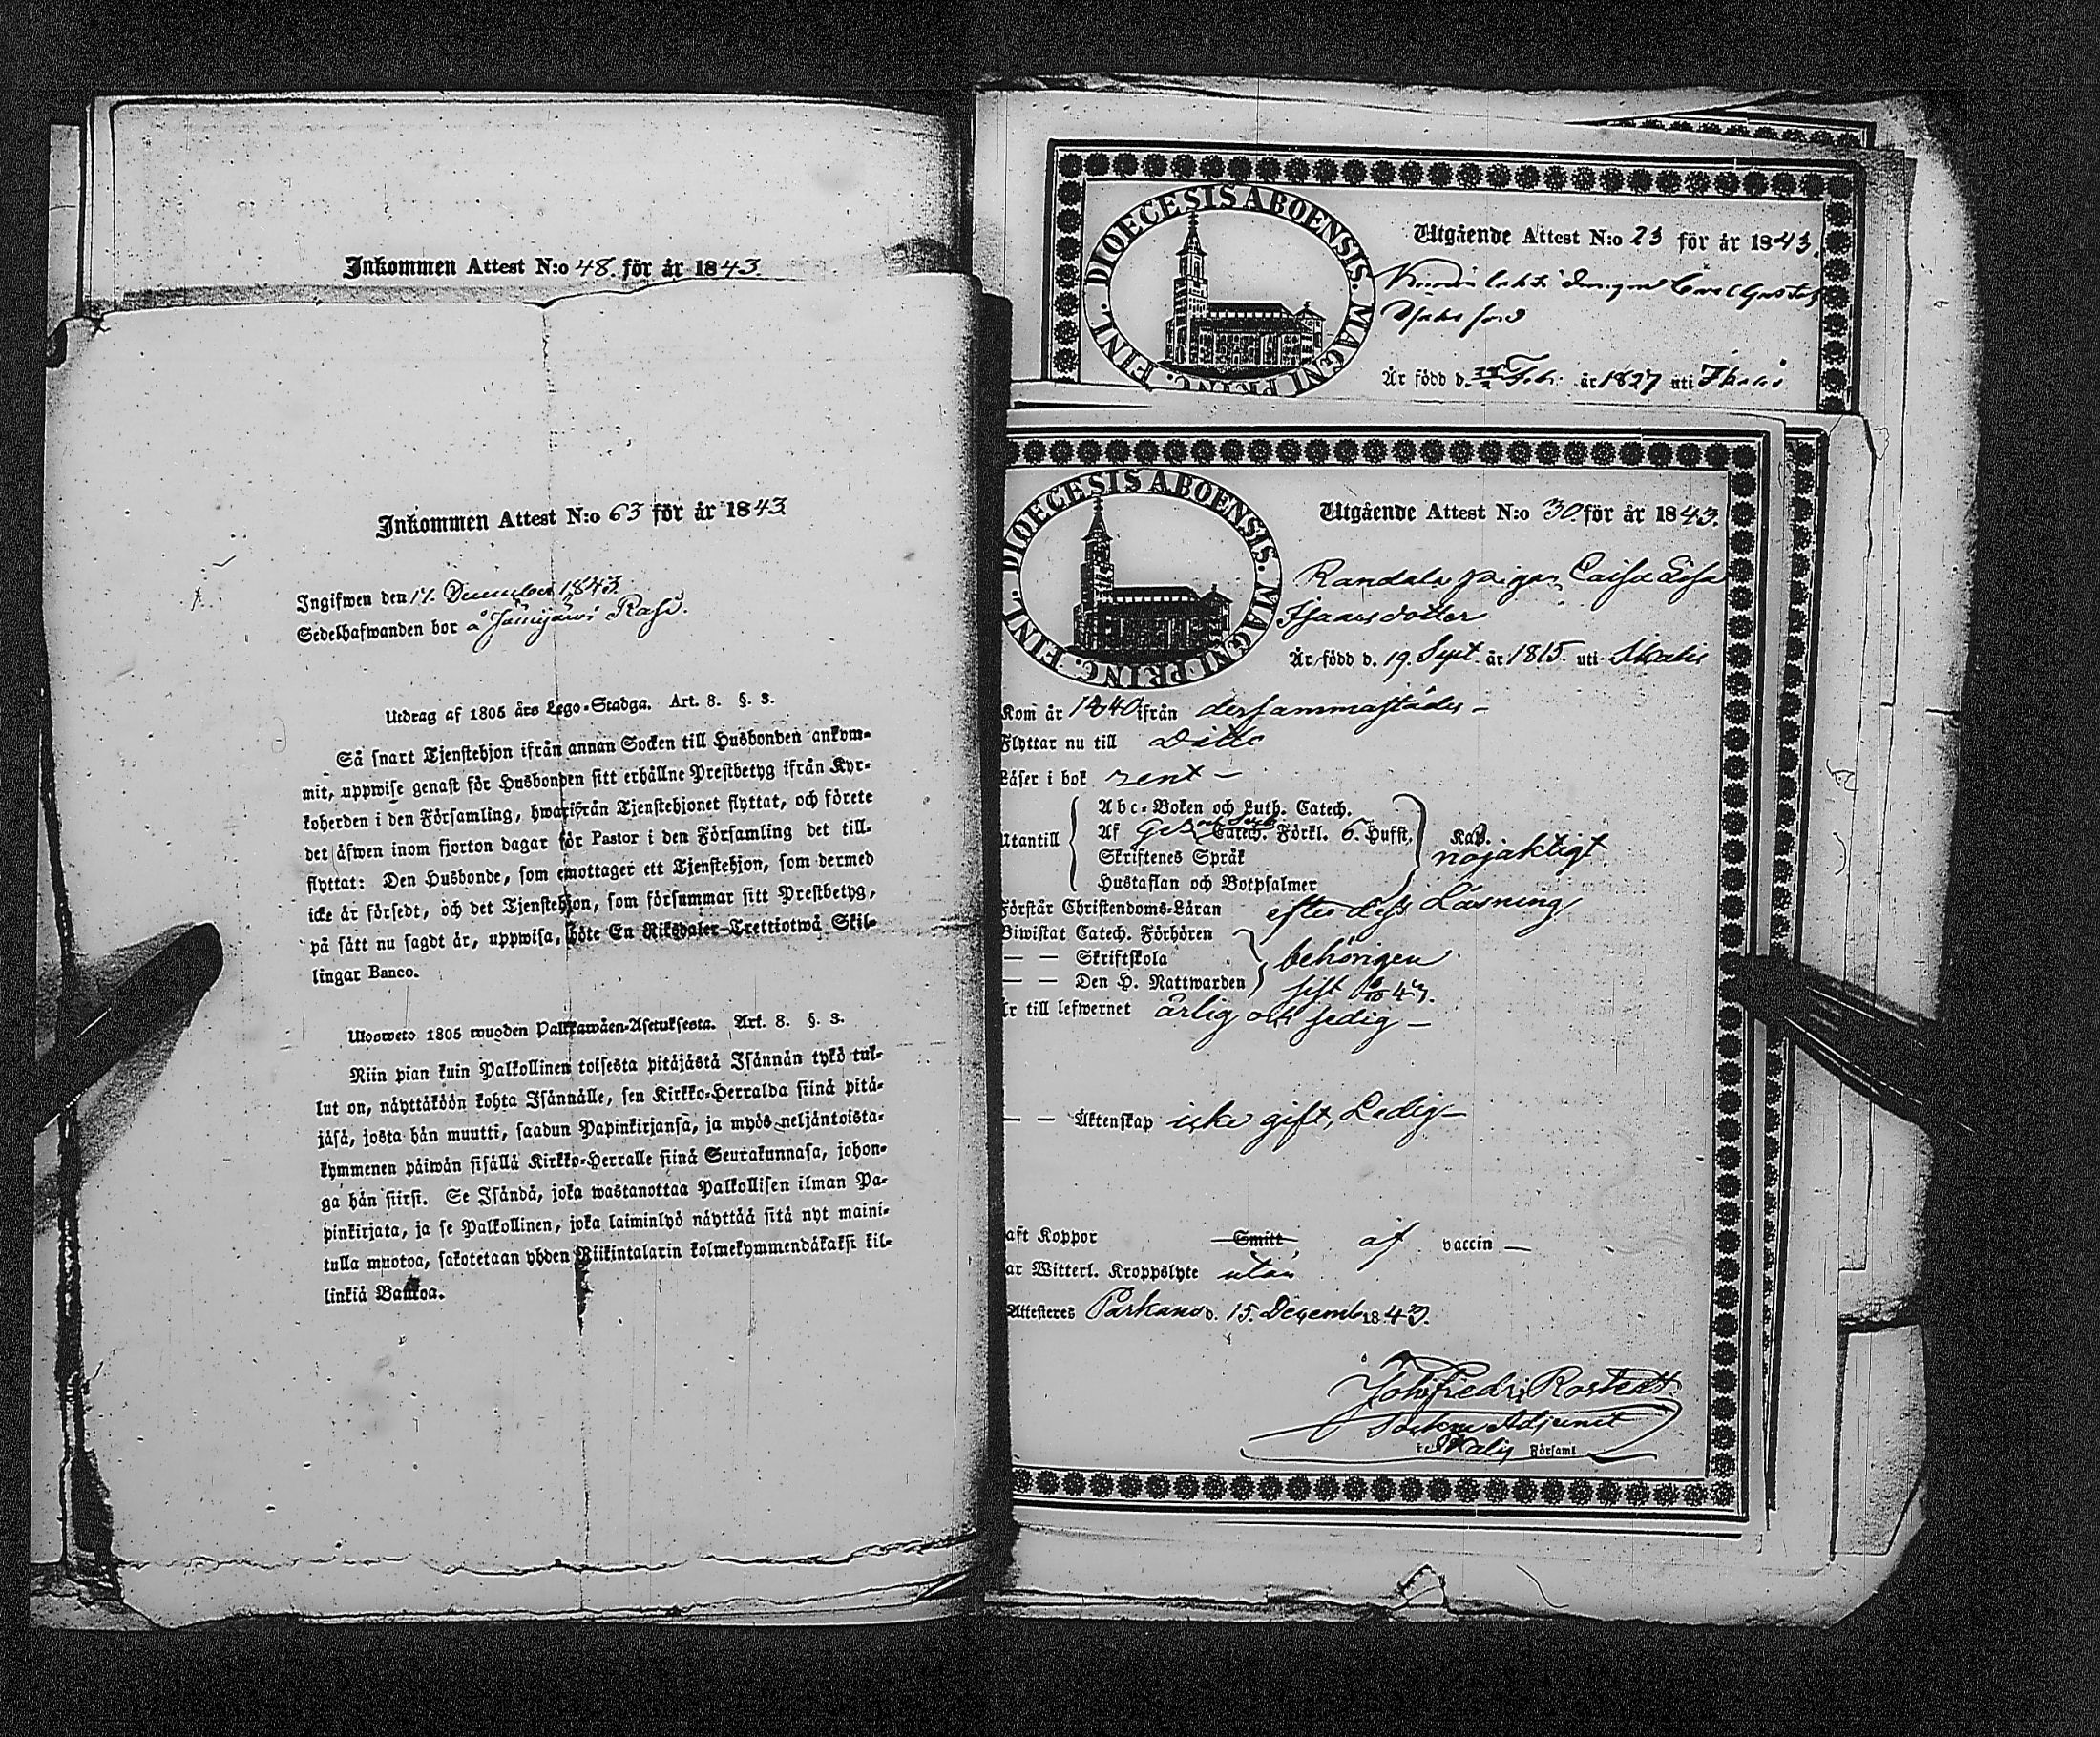 Inkommen Attest N:o 48. för år 1843.
Inkommen Attest N:o 63 för år 1843
Ingifwen den 17. December 1843.
Sedelhafwanden bor å Jämijärvi
Utdrag af 1805 års Lego-Stadga. Art. 8. §. 3.
Så snart Tjenstehjon ifrån annan Socken till Husbonden ankom-
mit, uppwise genast för Husbonden sitt erhållne Prestbetyg ifrån Kyr-
koherden i den Församling, hwarifrån Tjenstehjonet flyttat, och förete
det äfwen inom fjorton dagar för Pastor i den Församling det till-
flyttat: Den Husbonde, som emottager ett Tjenstehjon, som dermed
icke är försedt, och det Tjenstehjon, som försummar sitt Prestbetyg,
på sätt nu sagdt är, uppwisa, böte En Riksdaler Trettiotwå Skil-
lingar Banco.
Ulosweto 1805 wuoden Palkkawäen-Asetuksesta. Art. 8. §. 3.
Niin pian kuin Palkollinen toisesta pitäjästä Isännän tykö tul-
lut on, näyttäköön kohta Isännälle, sen Kirkko-Herralda siinä pitä-
jäsä, josta hän muutti, saadun Papinkirjansa, ja myös neljäntoista-
kymmenen päiwän sisällä Kirkko-Herralle siinä Seurakunnasa, johon-
ga hän siirsi. Se Isändä, joka wastanottaa Palkollisen ilman Pa-
pinkirjata, ja se Palkollinen, joka laiminlyö näyttää sitä nyt maini-
tulla muotoa, sakotetaan yhden Riikintalarin kolmekymmendäkaksi kil-
linkiä Bankoa.
DIOECESIS ABOENSIS. MAGNI PRINC. FINL.
Utgående Attest N:o 23 för år 1843.
Carl Gustaf
Är född d. Feb. år 1827 uti Ikalis
DIOECESIS ABOENSIS. MAGNI PRINC. FINL.
Utgående Attest N:o 30. för år 1843.
Randala pigan Caisa Lisa
dotter
Är född d. 19. Sept. år 1815. uti Ikalis
Kom år 1840 ifrån dersammastädes –
Flyttar nu till Ditto
Läser i bok rent –
Utantill
Abc-Boken och Luth. Catech.
Af Catech. Förkl. 6. Hufst. Kap.
nöjaktigt.
Skriftenes Språk
Hustaflan och Botpsalmer
Förstår Christendoms-Läran efter dess Läsning
Biwistat Catech. Förhören
— — Skriftskola behörigen
— — Den H. Nattwarden sist 43.
är till lefwernet ärlig och sedig –
— — Äktenskap icke gift, Ledig –
aft Koppor Smitt af vaccin —
ar Witterl. Kroppslyte utan
Attesteres Parkano d. 15. Decemb 1843.
Joh. Fredr. Rostedt
Sockne Adjunct
i Ikalis Församl